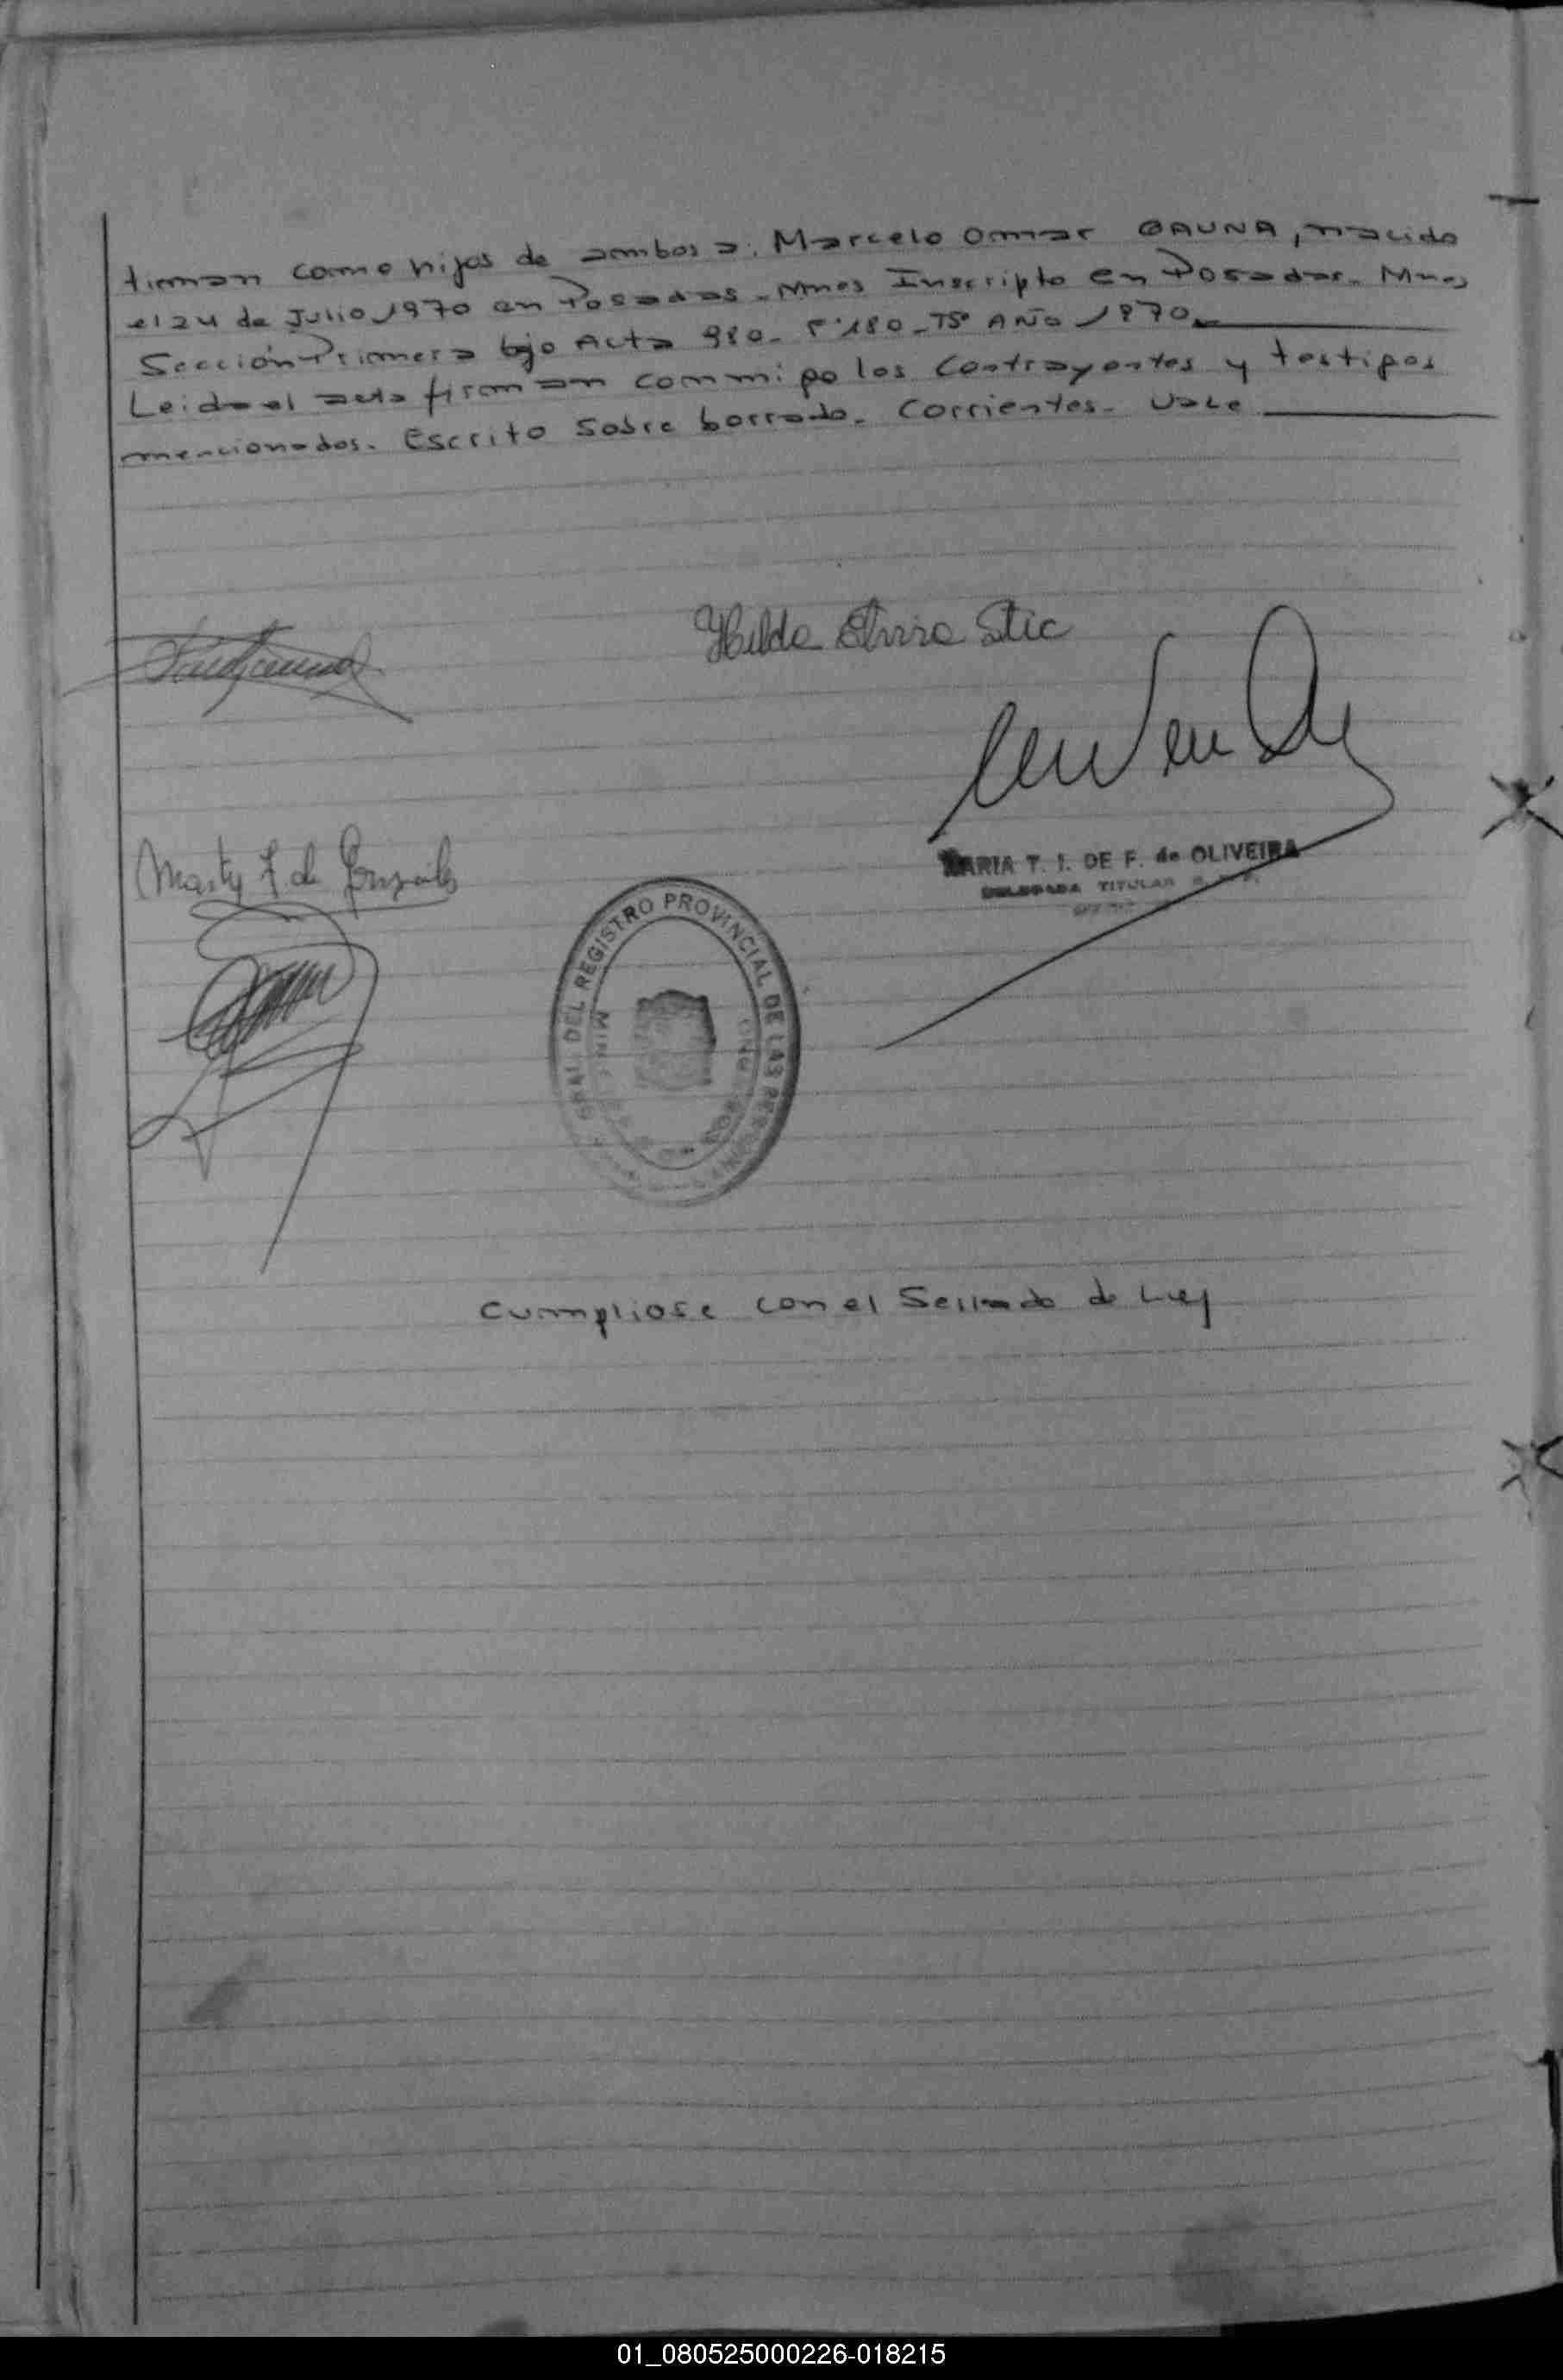 timan como hijos de ambos a: Marcelo Omar GAUNA, nacido
el 24 de Julio 1970 en Posadas - Mnes Inscripto en Posadas - Mnes
Sección Primera bajo Acta 980 - Fº 180 - Tº 5º Año 1970
Leida el acta firman conmigo los contrayentes y testigos
mencionados. Escrito sobre borrado - Corrientes - Vale
Hilda Elvira Stic
MARIA T. I. DE F. de OLIVEIRA
DELEGADA TITULAR
Marty F de González
GRAL. DEL REGISTRO PROVINCIAL DE LAS PERSONAS
Cumpliose con el Sellado de Ley
01_080525000226-018215